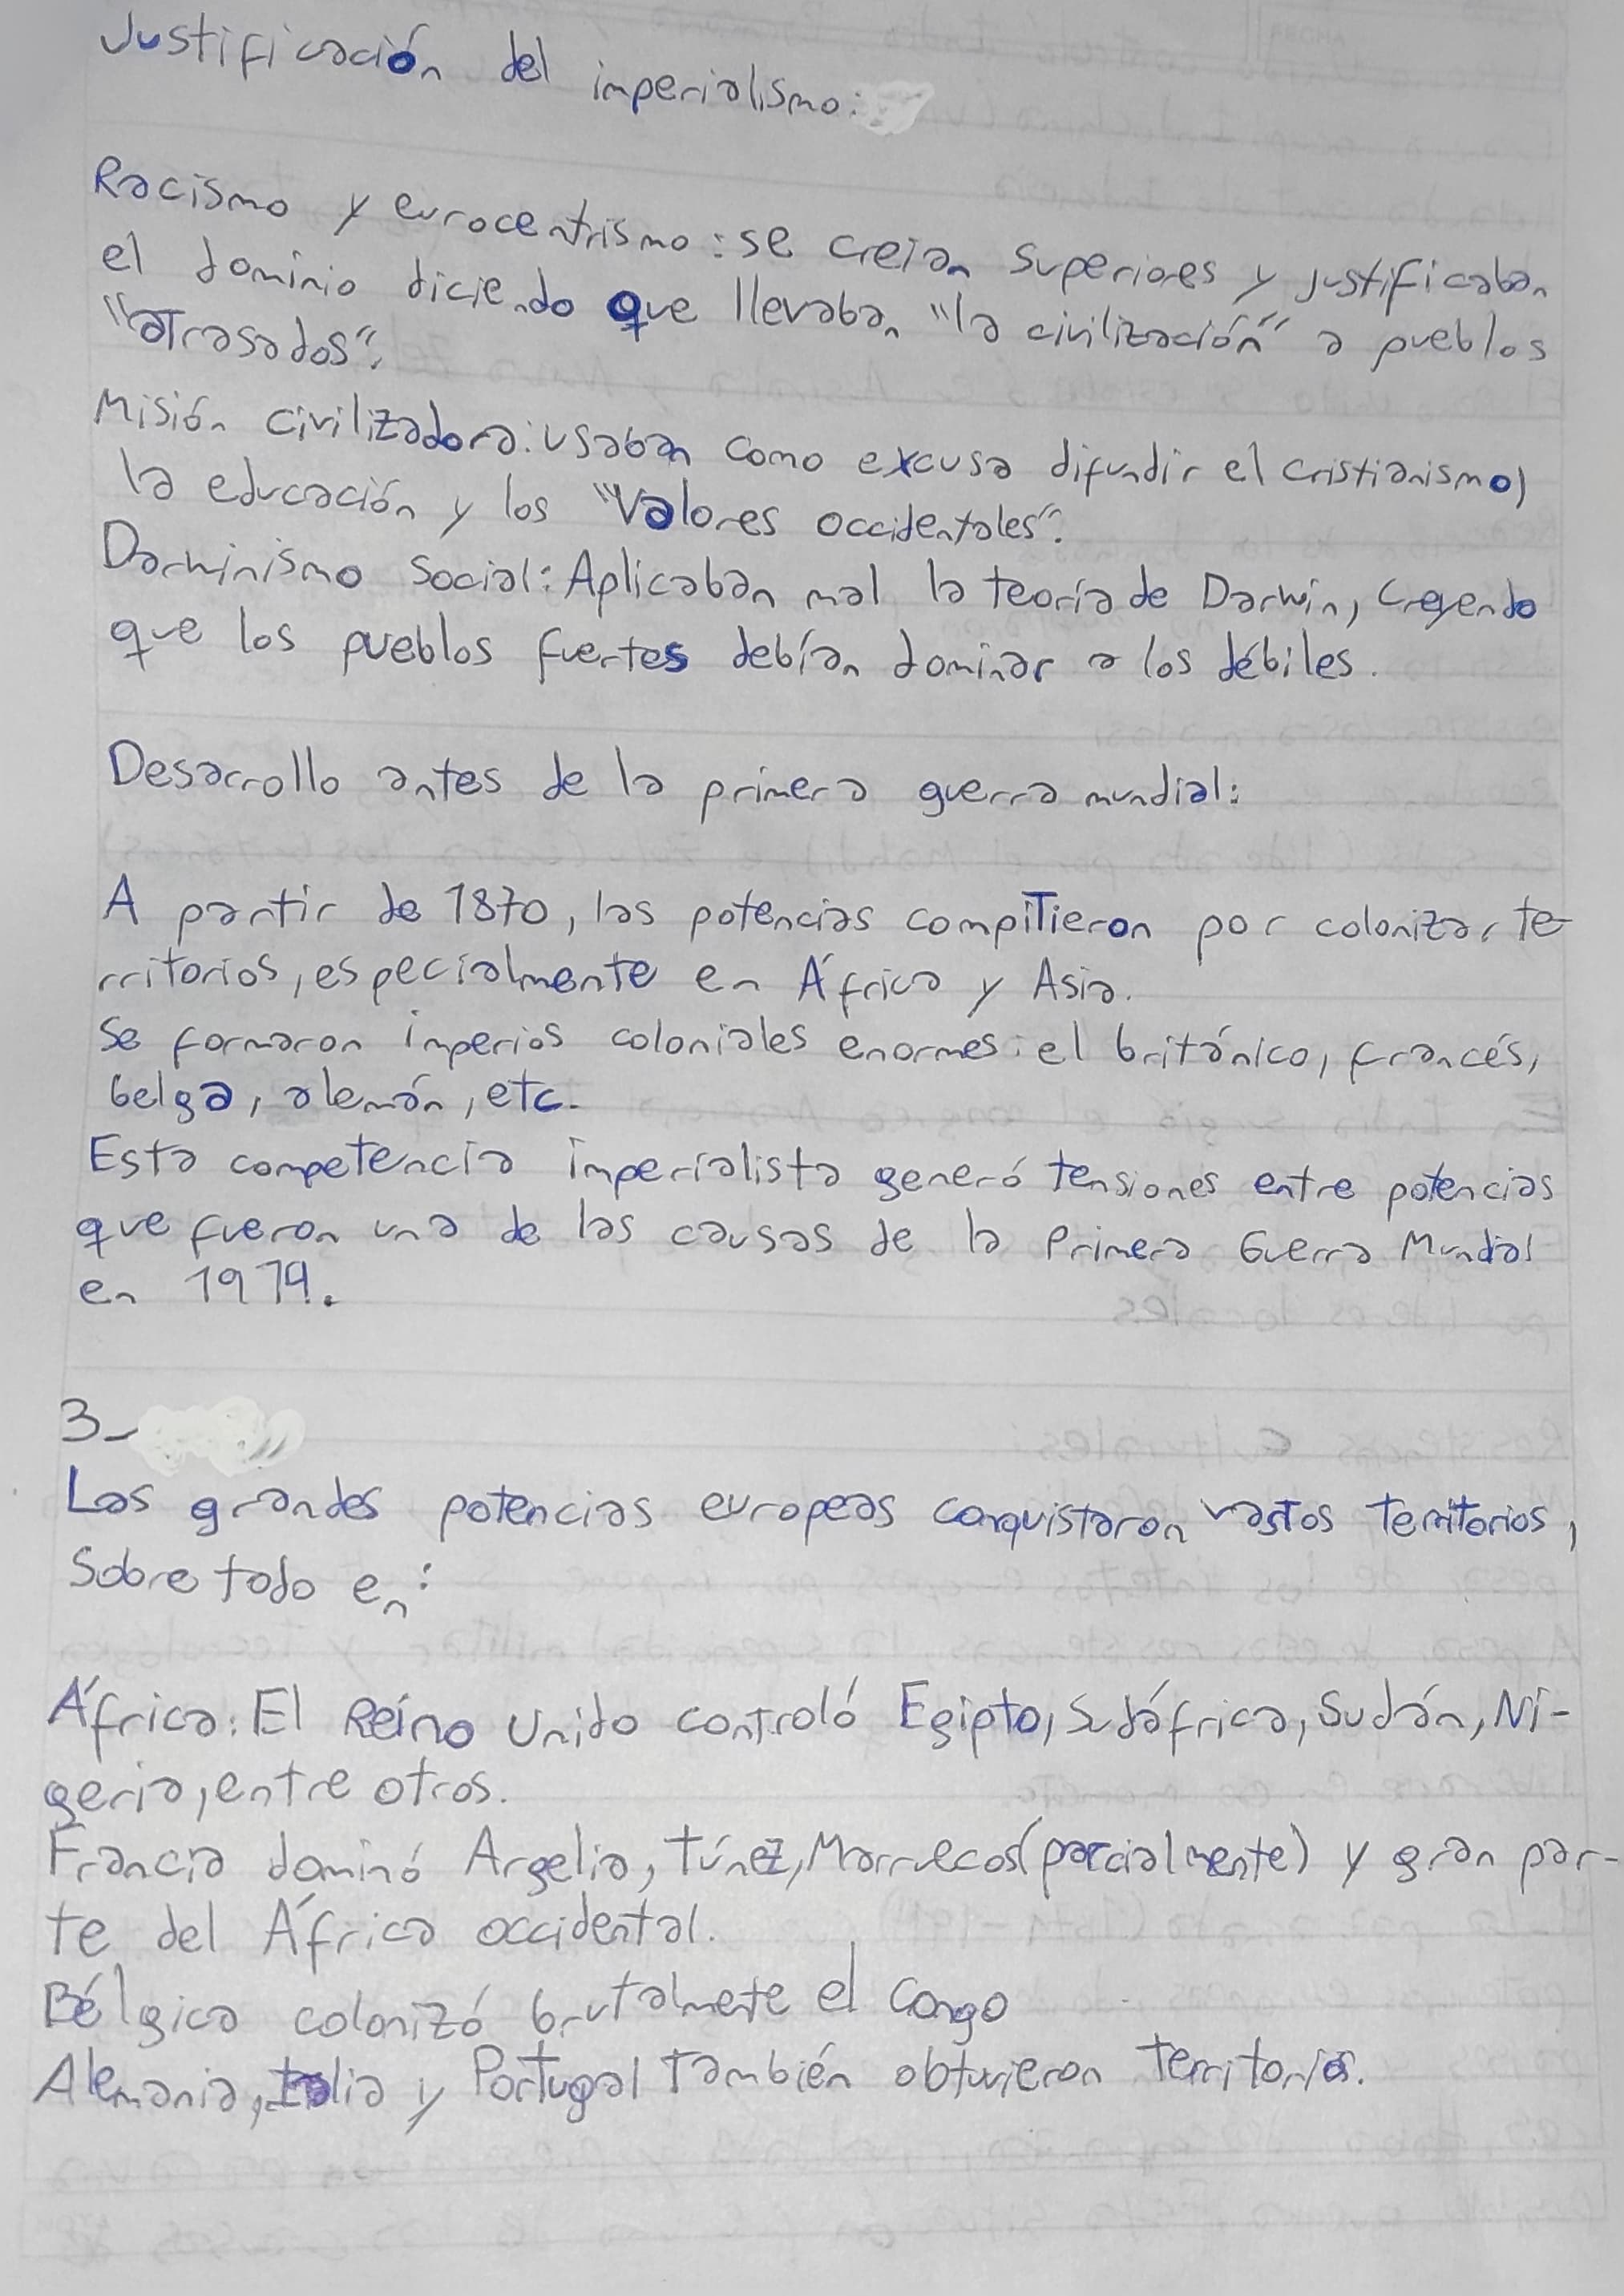 Justificación del imperialismo:
Racismo y eurocentrismo: se creian superiores y justificaban
el dominio diciendo que llevaban "la civilización" a pueblos
"atrasados".
Misión civilizadora: usaban como excusa difundir el cristianismo,
la educación y los "Valores occidentales".
Darwinismo social: Aplicaban mal la teoría de Darwin, creyendo
que los pueblos fuertes debían dominar a los débiles.
Desarrollo antes de la primera guerra mundial:
A partir de 1870, las potencias compitieron por colonizar te-
rritorios, especialmente en África y Asia.
Se formaron imperios coloniales enormes: el británico, francés,
belga, alemán, etc.
Esta competencia imperialista generó tensiones entre potencias
que fueron una de las causas de la Primera Guerra Mundial
en 1914.
3-
Las grandes potencias europeas conquistaron vastos territorios,
Sobre todo en:
África: El Reino Unido controló Egipto, Sudáfrica, Sudán, Ni-
geria, entre otros.
Francia dominó Argelia, Túnez, Marruecos (parcialmente) y gran par-
te del África occidental.
Bélgica colonizó brutalmente el Congo
Alemania, Italia y Portugal también obtuvieron territorios.